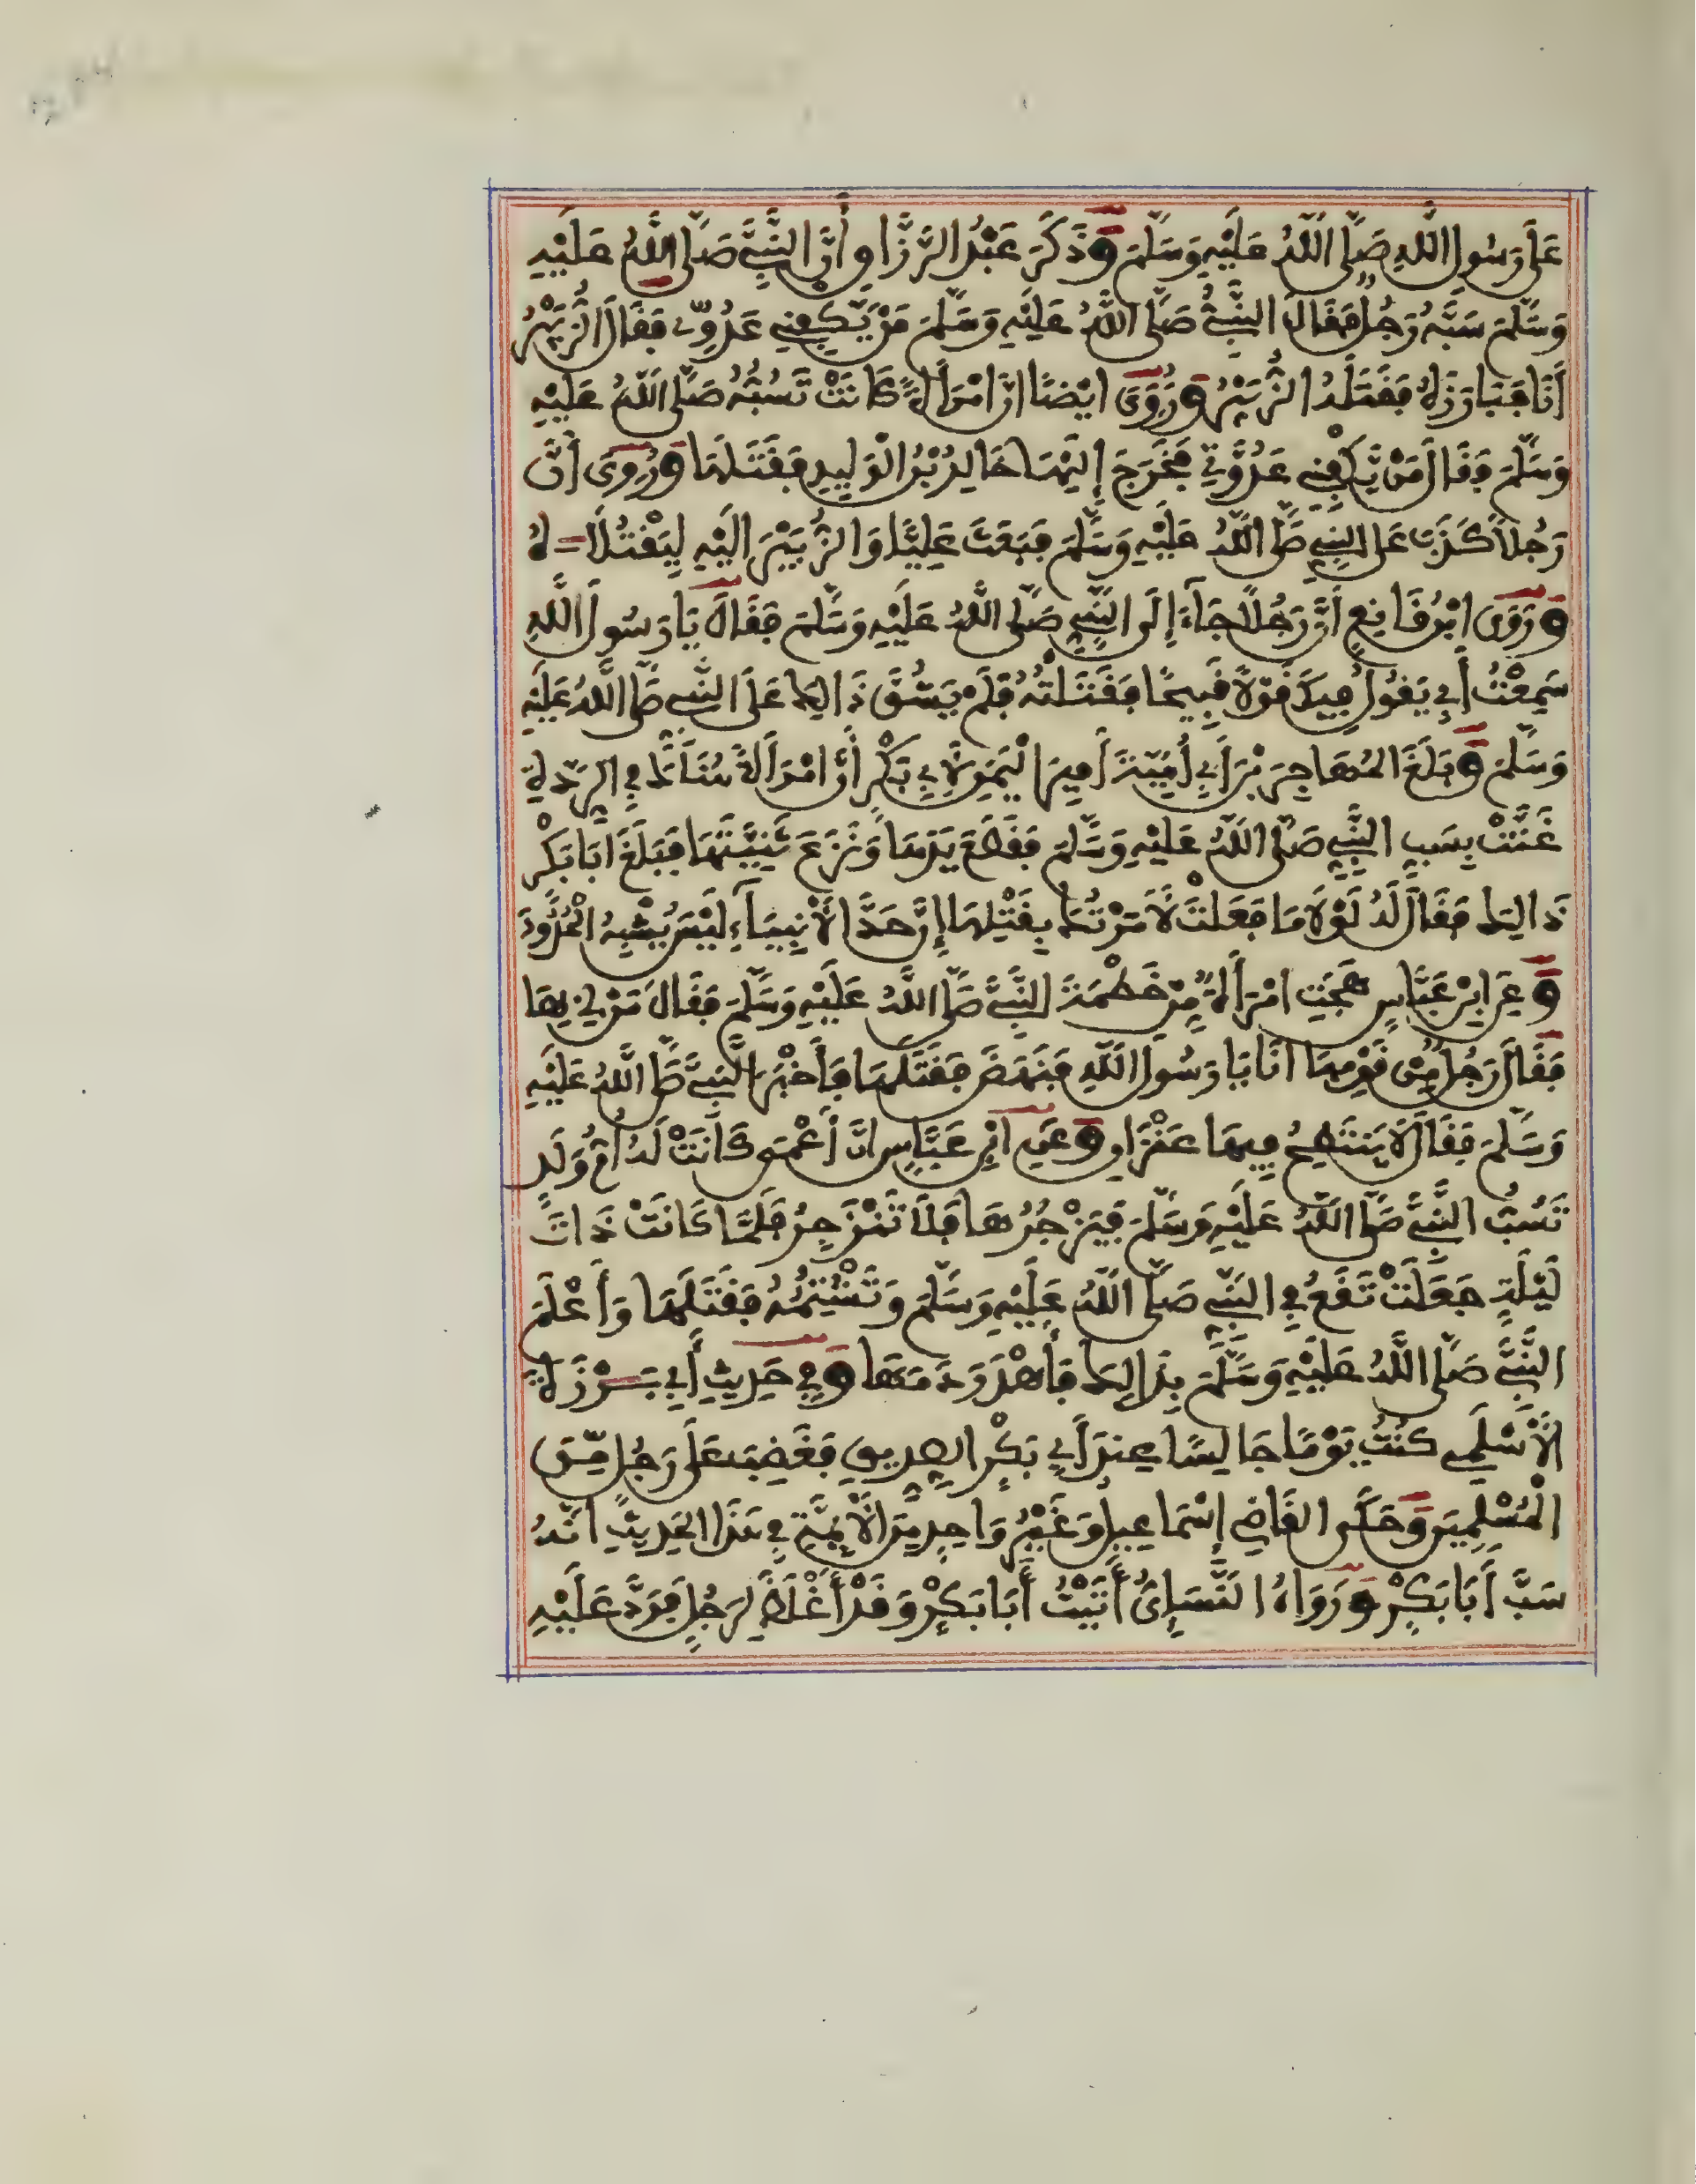 عَلَى رَسُولِ اللَّهِ صَلَّى اللَّهُ عَلَيْهِ وَسَلَّمَ وَذَكَرَ عَبْدُ الرَّزَّاقِ أَنَّ النَّبِيَّ صَلَّى اللَّهُ عَلَيْهِ
وَسَلَّمَ سَبَّهُ رَجُلٌ فَقَالَ النَّبِيُّ صَلَّى اللَّهُ عَلَيْهِ وَسَلَّمَ مَنْ يَكْفِينِي عَدُوِّي فَقَالَ الزُّبَيْرُ
أَنَا فَبَارَزَهُ فَقَتَلَهُ الزُّبَيْرُ وَرَوَى ايْضًا انَّ امْرَأَةً كَانَتْ تَسُبُّهُ صَلَّى اللَّهُ عَلَيْهِ
وَسَلَّمَ فَقَالَ مَنْ يَكْفِينِي عَدُوَّتِي فَخَرَجَ إِلَيْهَا خَالِدُ بْنُ الْوَلِيدِ فَقَتَلَهَا وَرُوِىَ أَنَّ
رَجُلًا كَذَبَ عَلَى النَّبِيِّ صَلَّى اللَّهُ عَلَيْهِ وَسَلَّمَ فَبَعَثَ عَلِيًّا وَالزُّبَيْرَ إِلَيْهِ لِيَقْتُلَاهُ
وَرَوَى ابْنُ قَانِعٍ أَنَّ رَجُلًا جَاءَ إِلَى النَّبِيِّ صَلَّى اللَّهُ عَلَيْهِ وَسَلَّمَ فَقَالَ يَا رَسُولَ اللَّهِ
سَمِعْتُ أَبِي يَقُولُ فِيكَ قَوْلًا قَبِيحًا فَقَتَلْتُهُ فَلَمْ يَشُقَّ ذَالِكَ عَلَى النَّبِيِّ صَلَّى اللَّهُ عَلَيْهِ
وَسَلَّمَ وَبَلَغَ الْمُهَاجِرَ بْنَ أَبِي أُمَيَّةَ أَمِيرَ الْيَمَنِ لِأَبِي بَكْرٍ أَنَّ امْرَأَةً هُنَاكَ فِي الرِّدَّةِ
غَنَّتْ بِسَبِّ النَّبِيِّ صَلَّى اللَّهُ عَلَيْهِ وَسَلَّمَ فَقَطَعَ يَدَهَا وَنَزَعَ ثَنِيَّتَهَا فَبَلَغَ ابَا بَكْرٍ
ذَالِكَ فَقَالَ لَهُ لَوْلَا مَا فَعَلْتَ لَأَمَرْتُكَ بِقَتْلِهَا إِنَّ حَدَّ الْأَنْبِيَاءِ لَيْسَ يُشْبِهُ الْحُدُودَ
وَعَنِ ابْنِ عَبَّاسٍ هَجَتِ امْرَأَةٌ مِنْ خَطْمَةَ النَّبِيَّ صَلَّى اللَّهُ عَلَيْهِ وَسَلَّمَ فَقَالَ مَنْ لِي بِهَا
فَقَالَ رَجُلٌ مِنْ قَوْمِهَا انَا يَا رَسُولَ اللَّهِ فَنَهَضَ فَقَتَلَهَا فَأَخْبَرَ النَّبِيَّ صَلَّى اللَّهُ عَلَيْهِ
وَسَلَّمَ فَقَالَ لَا يَنْتَطِحُ فِيهَا عَنْزَانِ وَعَنِ ابْنِ عَبَّاسٍ انَّ أَعْمَى كَانَتْ لَهُ أُمُّ وَلَدٍ
تَسُبُّ النَّبِيَّ صَلَّى اللَّهُ عَلَيْهِ وَسَلَّمَ فَيَزْجُرُهَا فَلَا تَنْزَجِرُ فَلَمَّا كَانَتْ ذَاتَ
لَيْلَةٍ جَعَلَتْ تَقَعُ فِي النَّبِيِّ صَلَّى اللَّهُ عَلَيْهِ وَسَلَّمَ وَتَشْتِمُهُ فَقَتَلَهَا وَأَعْلَمَ
النَّبِيَّ صَلَّى اللَّهُ عَلَيْهِ وَسَلَّمَ بِذَالِكَ فَأَهْدَرَ دَمَهَا وَفِي حَدِيثِ أَبِي بَرْزَةَ
الْأَسْلَمِي كُنْتُ يَوْمًا جَالِسًا عِنْدَ أَبِي بَكْرٍ الصِّدِّيقِ فَغَضِبَ عَلَى رَجُلٍ مِّنَ
الْمُسْلِمِينَ وَحَكَى الْقَاضِي إِسْمَاعِيلُ وَغَيْرُ وَاحِدٍ مِنَ الْأَئِمَّةِ فِي هَذَا الْحَدِيثِ انَّهُ
سَبَّ أَبَا بَكْرٍ وَرَوَاهُ النَّسَائِيُّ أَتَيْتُ أَبَا بَكْرٍ وَقَدْ أَغْلَظَ لِرَجُلٍ فَرَدَّ عَلَيْهِ